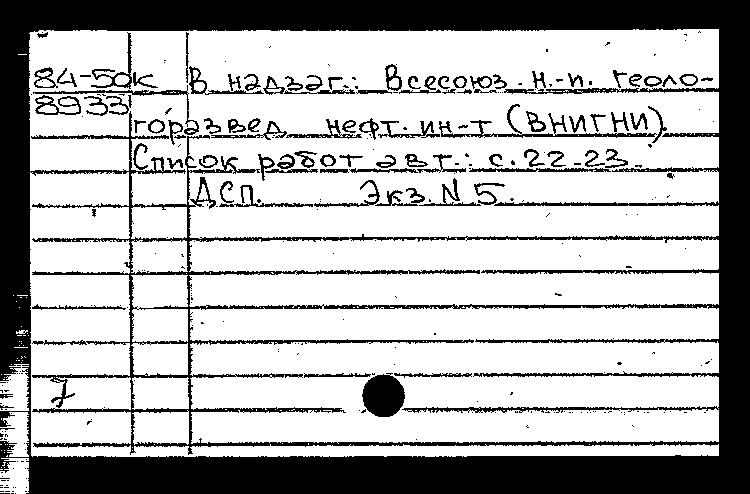 84-50к В надзаг.: Всесоюз. н.-п. геоло-
8933
горазвед. нефт. ин-т (ВНИГНИ).
Список работ авт.: с. 22-23.
ДСП. Экз. N 5.
7